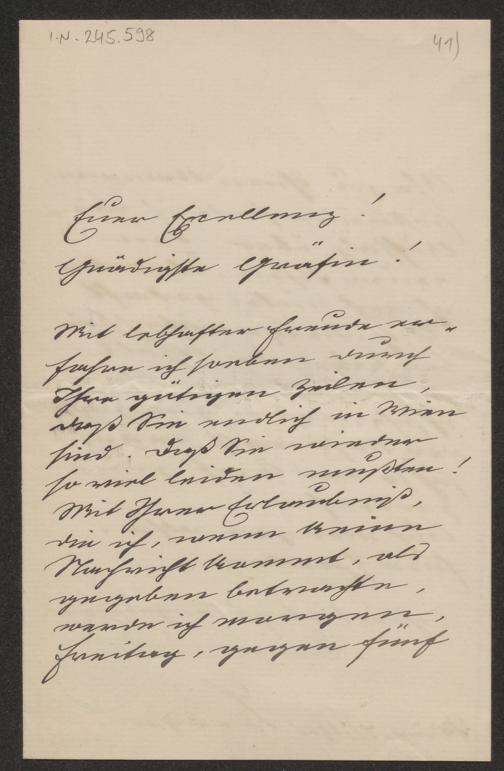 I.N. 245.598
41)
Euer Excellenz!
Gnädigste Gräfin!
Mit lebhafter Freude er-
fahre ich soeben durch
Ihre gütigen Zeilen,
daß Sie endlich in Wien
sind. Daß Sie wieder
so viel leiden mußten!
Mit Ihrer Erlaubniß,
die ich, wenn keine
Nachricht kommt, als
gegeben betrachte,
werde ich morgen,
Freitag, gegen fünf